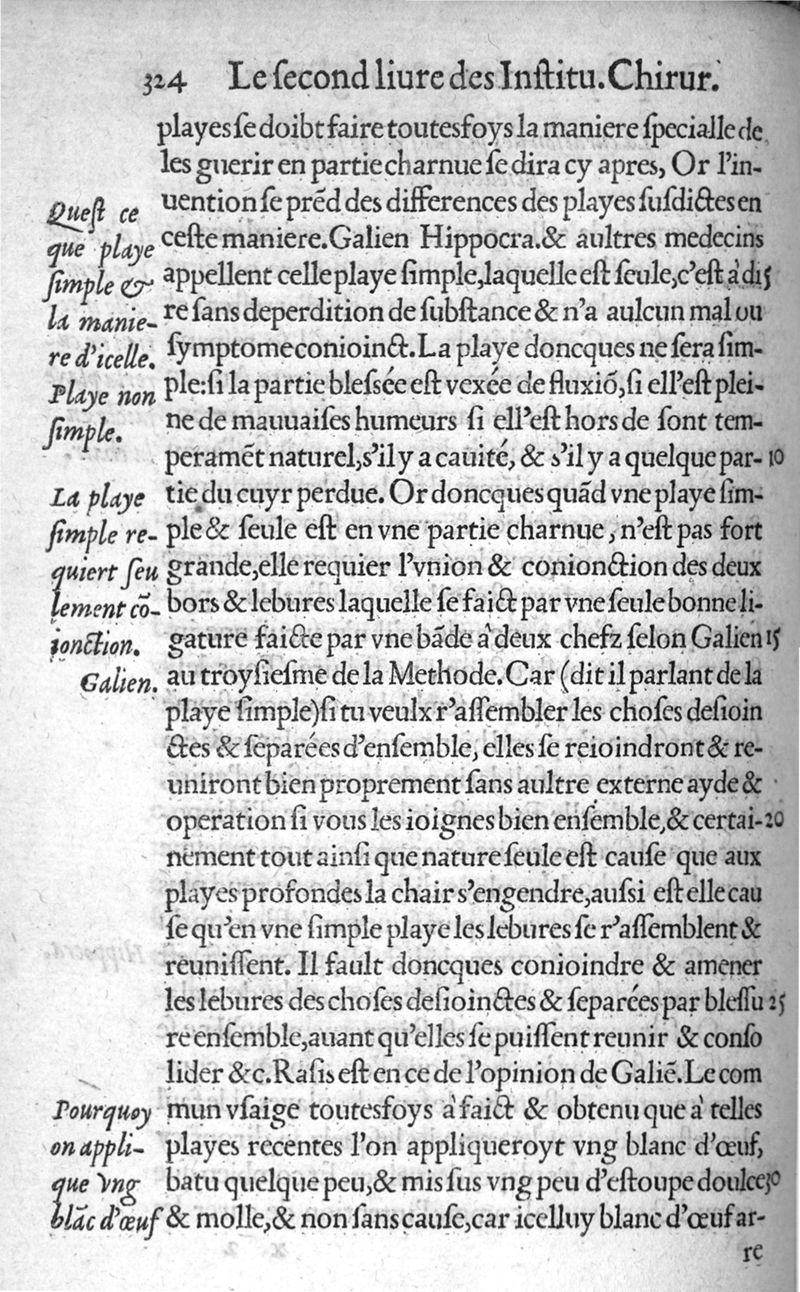 324 Le ſecond liure des Inſtitu. Chirur.
playes ſe doibt faire toutesfoys la maniere ſpecialle de
les guerir en partie charnue ſe dira cy apres, Or l'in-
uention ſe prẽd des differences des playes ſuſdictes en
ceſte maniere. Galien Hippocra. & aultres medecins
appellent celle playe ſimple, laquelle eſt ſeule, c'eſt à di 5
re ſans deperdition de ſubſtance & n'a aulcun mal ou
ſymptome conioinct. La playe doncques ne ſera ſim-
ple: ſi la partie bleſsée eſt vexée de fluxiõ, ſi ell'eſt plei-
ne de mauuaiſes humeurs ſi ell'eſt hors de ſont tem-
peramẽt naturel, s'il y a cauité, & s'il y a quelque par- 10
tie du cuyr perdue. Or doncques quãd vne playe ſim-
ple & ſeule eſt en vne partie charnue, n'eſt pas fort
grande, elle requier l'vnion & conionction des deux
bors & lebures laquelle ſe faict par vne ſeule bonne li-
gature faicte par vne bãde à deux chefz ſelon Galien 15
au troyſieſme de la Methode. Car (dit il parlant de la
playe ſimple) ſi tu veulx r'aſſembler les choſes deſioin
ctes & ſeparées d'enſemble, elles ſe reioindront & re-
uniront bien proprement ſans aultre externe ayde &
operation ſi vous les ioignes bien enſemble, & certai- 20
nement tout ainſi que nature ſeule eſt cauſe que aux
playes profondes la chair s'engendre, auſsi eſt elle cau
ſe qu'en vne ſimple playe les lebures ſe r'aſſemblent &
reuniſſent. Il fault doncques conioindre & amener
les lebures des choſes deſioinctes & ſeparées par bleſſu 25
re enſemble, auant qu'elles ſe puiſſent reunir & conſo
lider &c. Raſis eſt en ce de l'opinion de Galiẽ. Le com
mun vſaige toutesfoys à faict & obtenu que à telles
playes recentes l'on appliqueroyt vng blanc d'œuf,
batu quelque peu, & mis ſus vng peu d'eſtoupe doulce 30
& molle, & non ſans cauſe, car icelluy blanc d'œuf ar-
re
Queſt ce
que playe
ſimple &
la manie-
re d'icelle.
Playe non
ſimple.
La playe
ſimple re-
quiert ſeu
lement cõ-
ionction.
Galien.
Pourquoy
on appli-
que vng
blãc d'œuf